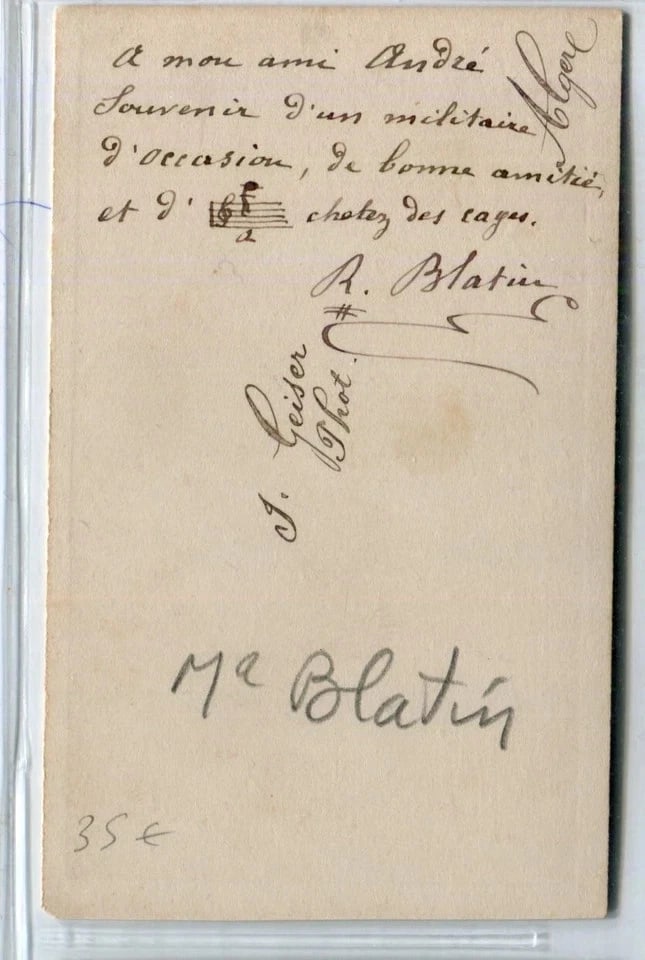 A mon ami André
Souvenir d'un militaire
d'occasion, de bonne amitié,
et d' chetez des cages.
R. Blatin
Alger
J. Geiser
Phot.
Ma Blatin
35 €